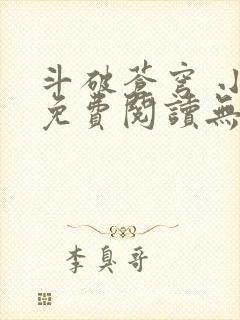 斗破蒼穹 小
免費閱讀無
李臭哥